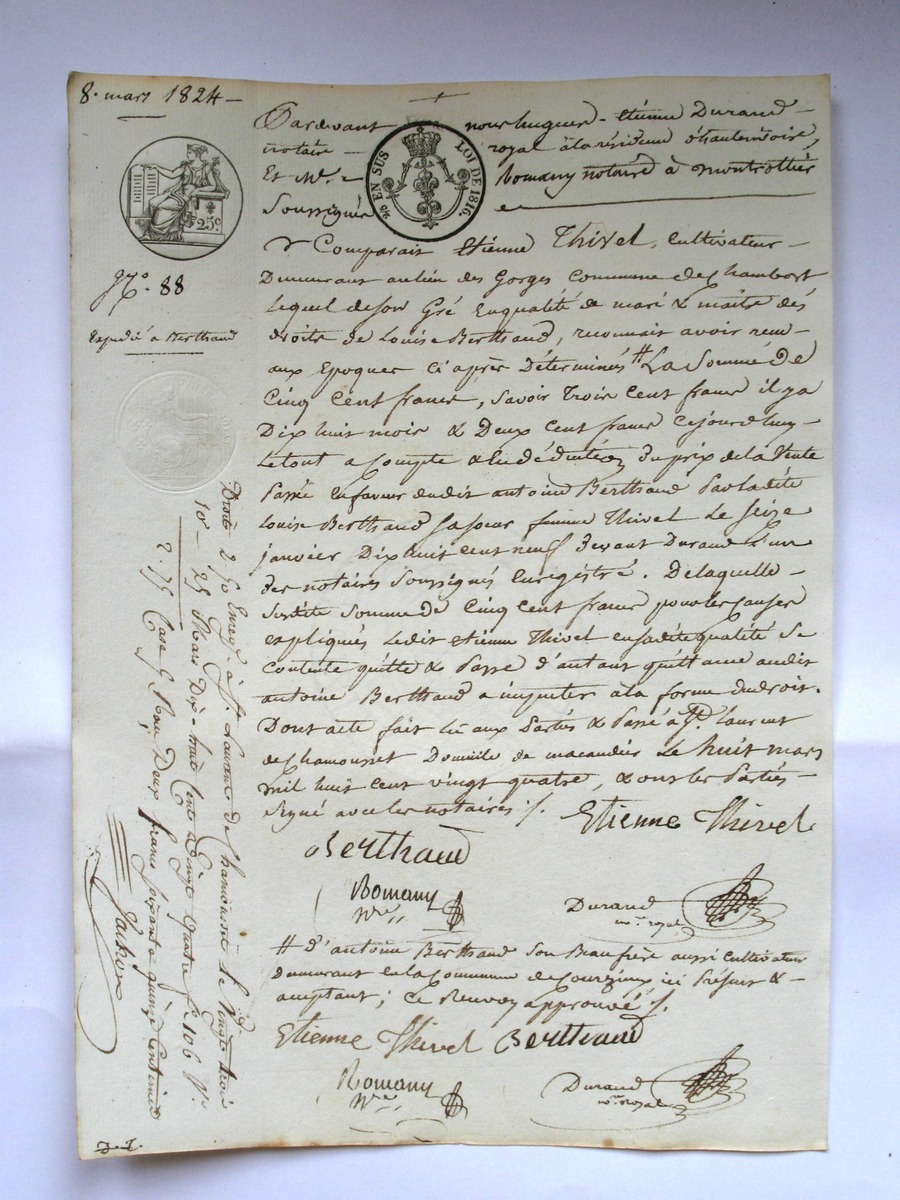 8. mars 1824
Pardevant nous hugues - etienne Durand
notaire royal à la résidence d'hauterivoire,
Et Me Romany notaire à montrottier
Soussignés
EN SUS
LOI DE 1816.
25c
No. 88
Expedié a Berthaud
Comparait Etienne Thivel, Cultivateur
Demeurant au lieu des Gorges Commune de Chambost
Lequel de son Gré En qualité de mari & maitre des
droits de Louise Berthaud, reconnait avoir reçu
aux Epoques Ci après Déterminés # La Somme de
Cinq Cent francs, Savoir trois Cent francs il y a
Dix huit mois & Deux Cent francs Cejourd'huy
Le tout a Compte & En déduction du prix de la Vente
Passée En faveur dudit antoine Berthaud Par la dite
Louise Berthaud sa soeur femme Thivel Le Seize
janvier Dix huit cent neuf devant Durand L'un
des notaires Soussignés Enregistré. De laquelle
Susdite Somme de Cinq Cent francs pour les Causes
Expliqués Ledit etienne Thivel en sadite qualité Se
Contente quitte & Passe d'autant quittance audit
antoine Berthaud a imputer à la forme du droit.
Dont acte fait lu aux Parties & Passé a St. Laurent
de Chamousset Domicile de le huit mars
mil huit Cent vingt quatre, & ont les Parties
Signé avec les notaires ./.
Etienne Thivel
Berthaud
Romany
Nre
Durand
Nre royal
# d'antoine Berthaud Son Beaufrère aussi Cultivateur
Demeurant En la Commune de Courzieux ici Présent &
acceptant; Ce Renvoy approuvé ./.
Etienne Thivel Berthaud
Romany
Nre
Durand
Nre royal
Droits 2 50 Enregé à St. Laurent de Chamousset le vingt trois
10 - 25 Mars Dix-huit Cent Vingt quatre fo. 106 Vo.
2. 75 Case 5 Reçu Deux francs soixante quinze Centimes
D. J.